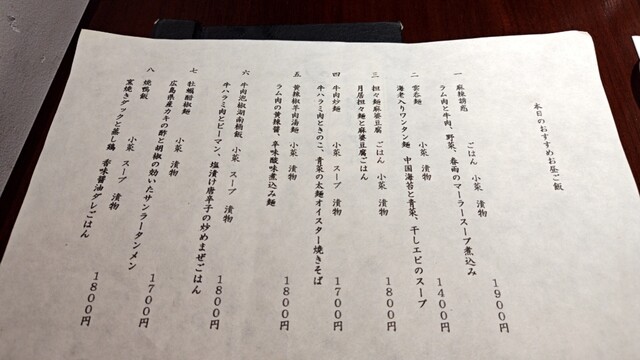 本日のおすすめお昼ご飯
一 麻辣誘惑 ごはん 小菜 漬物
ラム肉と牛肉、野菜、春雨のマーラースープ煮込み 1900円
二 雲呑麺 小菜 漬物
海老入りワンタン麺 中国海苔と青菜、干しエビのスープ 1400円
三 担々麺麻婆豆腐 ごはん 小菜 漬物
月居担々麺と麻婆豆腐ごはん 1800円
四 牛肉炒麺 小菜 スープ 漬物
牛ハラミ肉ときのこ、青菜の太麺オイスター焼きそば 1700円
五 黄辣椒羊肉湯麺 小菜 漬物
ラム肉の黄辣醤、辛味酸味煮込み麺 1800円
六 牛肉泡椒湖南桶飯 小菜 スープ 漬物
牛ハラミ肉とピーマン、塩漬け唐辛子の炒めまぜごはん 1800円
七 牡蠣酣椒麺 小菜 漬物
広島県産カキの酢と胡椒の効いたサンラータンメン 1700円
八 焼鴨飯 小菜 スープ 漬物
窯焼きダックと蒸し鶏 香味醤油ダレごはん 1800円